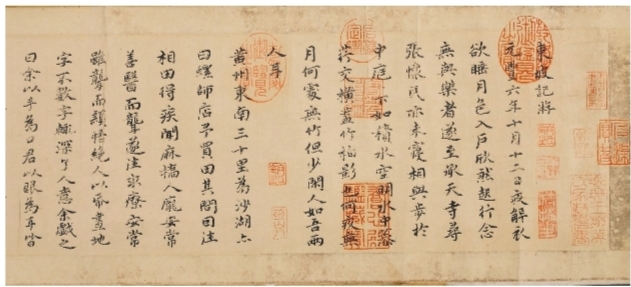 東坡記
元豐六年十月十二日夜解衣
欲睡月色入戶欣然起行念
無與樂者遂至承天寺尋
張懷民亦未寢相與步於
中庭下如積水空明水中藻
荇交橫蓋竹柏影也何夜無
月何處無竹但少閑人如吾兩
人耳
黃州東南三十里為沙湖亦
曰螺師店予買田其間因往
相田得疾聞麻橋人龐安常
善醫而聾遂往求療安常
雖聾而穎悟絕人以帋畫地
字不數字輒深了人意余戲之
曰余以手為口君以眼為耳皆